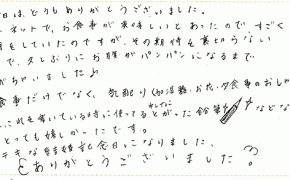 日は、どうもありがとうございました。
ネットで、お食事が美味しいとあったので、すごく
をしていたのですが、その期待を裏切らない
で、久しぶりにお腹がパンパンになるまで
がちゃいました♪
食事だけでなく、気配り(加湿器・お花・夕食事のおしゃ
これを書いている時に使ってるとがった鉛筆 などな
キレイに
とっても嬉しかったです。
テキな結婚記念日になりました。
ありがとうございました。